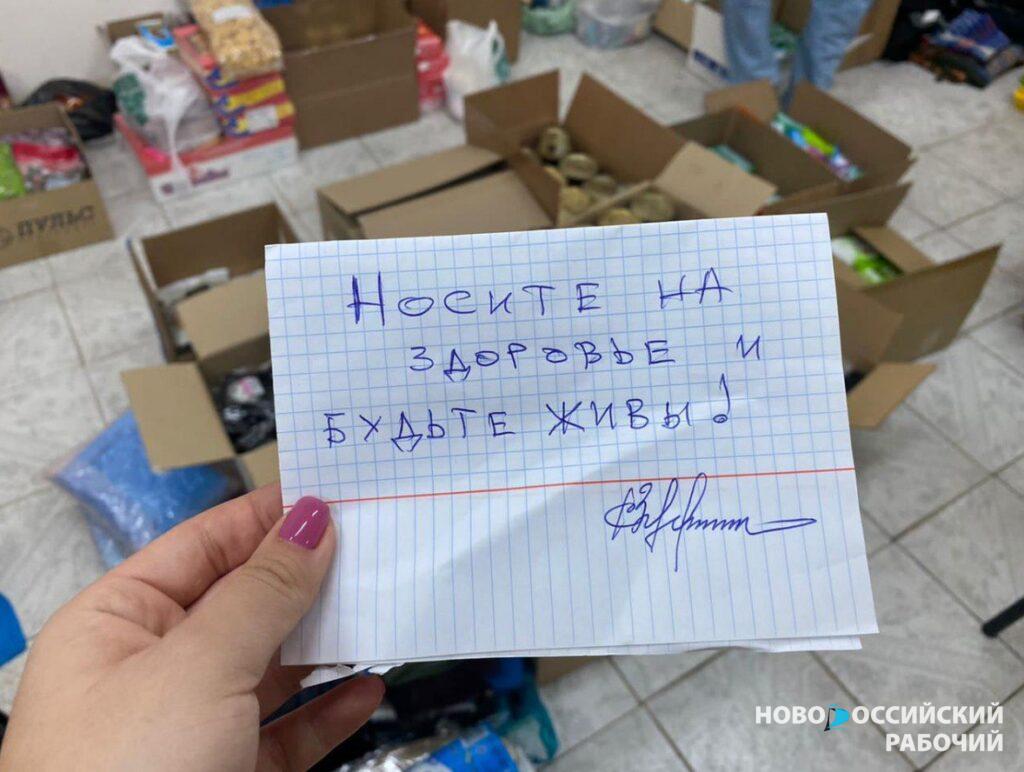 Носите на
здоровье и
будьте живы!
ПУЛЬС
НОВОРОССИЙСКИЙ
РАБОЧИЙ